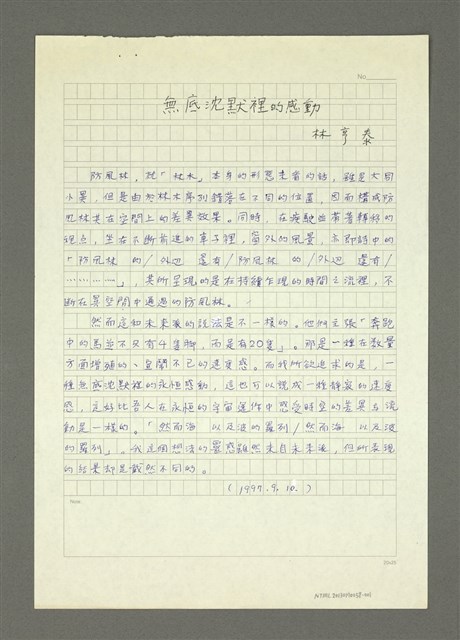 No.
無底沈默裡的感動
林亨泰
防風林,就「林木」本身的形態來看的話,雖是大同
小異,但是由於林木序列錯落在不同的位置,因而構成防
風林在空間上的差異效果。同時,在疾駛也有著移動的
視點,坐在不斷前進的車子裡,窗外的風景,亦即詩中的
「防風林 的/外邊 還有/防風林 的/外邊 還有/
…………」,其所呈現的是在持續乍現的時間之流裡,不
斷在異空間中通過的防風林。
然而這和未來派的說法是不一樣的。他們主張「奔跑
中的馬並不只有4隻腳,而是有20隻」。那是一種在數量
方面增殖的、喧鬧不已的速度感。而我所欲追求的是,一
種無底沈默裡的永恆感動,這也可以說成一種靜寂的速度
感,正好比吾人在永恆的宇宙運作中感受時空的差異与流
動是一樣的。「然而海 以及波的羅列/然而海 以及波
的羅列」。我這個想法的靈感雖然來自未來派,但所表現
的結果却是截然不同的。
(1997.9.10.)
Note
20x20